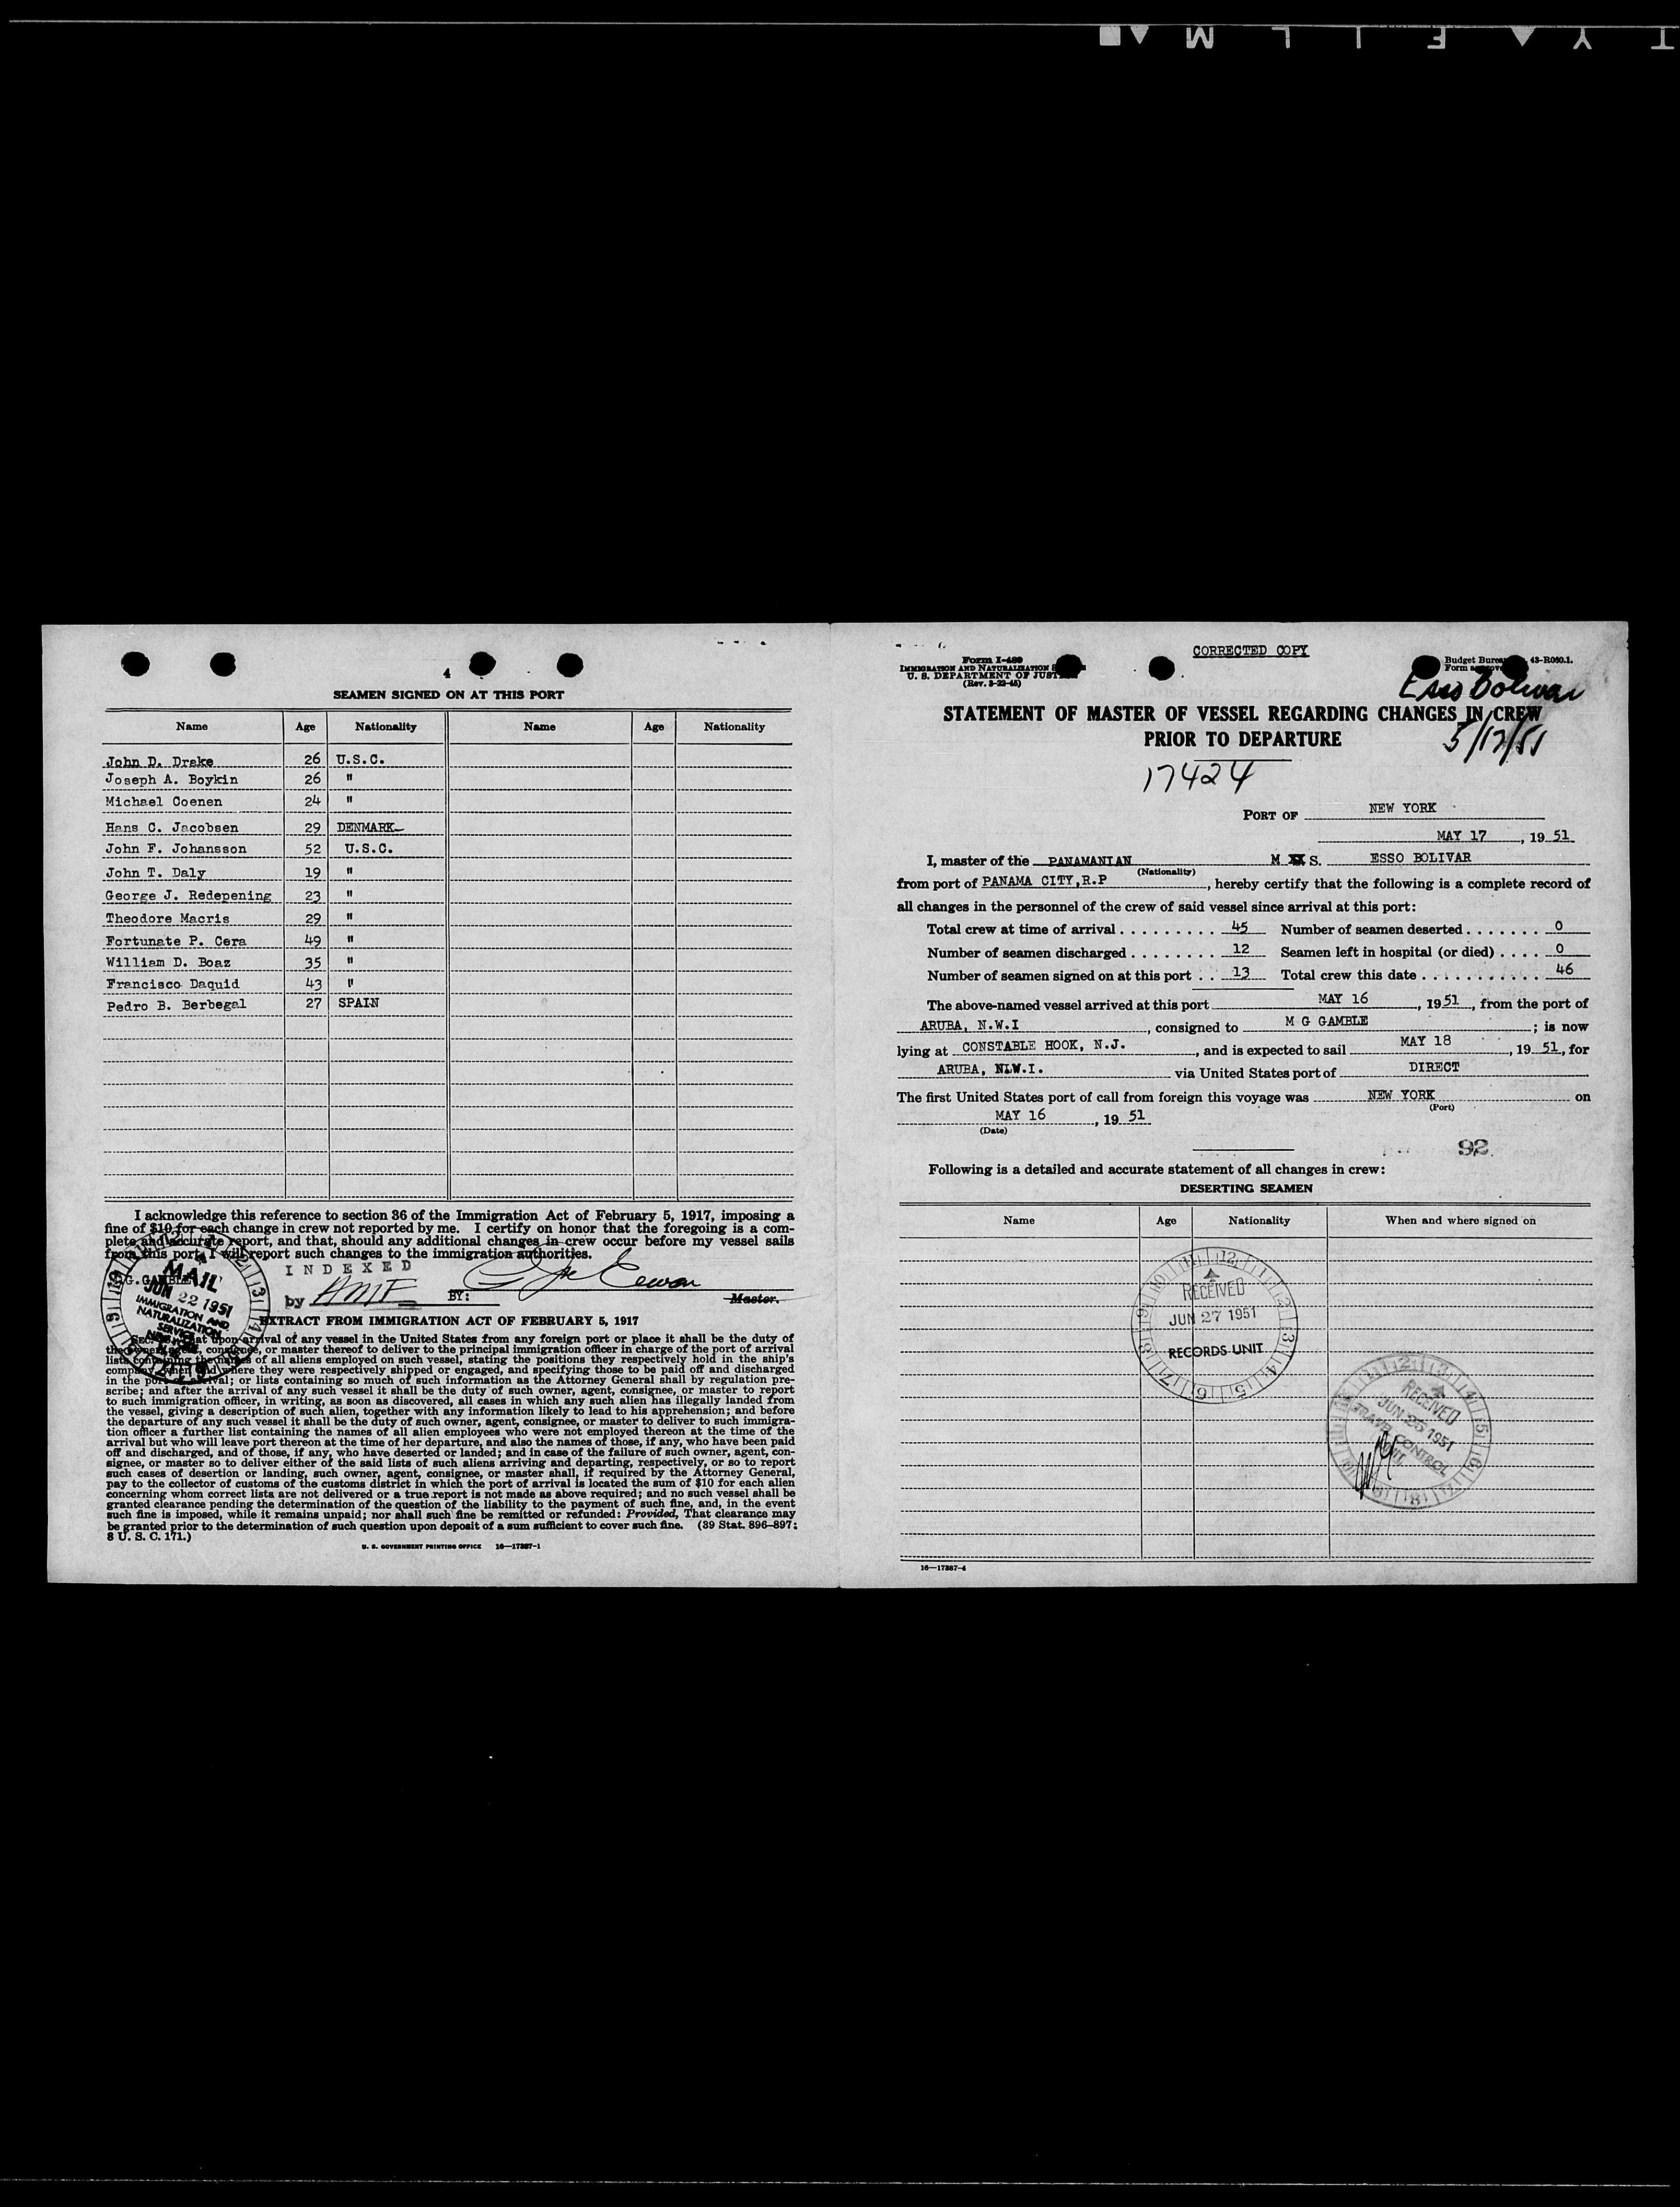 I Y F I L M
4
SEAMEN SIGNED ON AT THIS PORT
Name Age Nationality Name Age Nationality
John D. Drake 26 U.S.C.
Joseph A. Boykin 26 "
Michael Coenen 24 "
Hans C. Jacobsen 29 DENMARK
John F. Johansson 52 U.S.C.
John T. Daly 19 "
George J. Redepening 23 "
Theodore Macris 29 "
Fortunate P. Cera 49 "
William D. Boaz 35 "
Francisco Daquid 43 "
Pedro B. Berbegal 27 SPAIN
I acknowledge this reference to section 36 of the Immigration Act of February 5, 1917, imposing a
fine of $10 for each change in crew not reported by me. I certify on honor that the foregoing is a com-
plete and accurate report, and that, should any additional changes in crew occur before my vessel sails
from this port, I will report such changes to the immigration authorities.
INDEXED
G. GAMBLE
by BY:
Master.
MAIL
JUN 22 1951
IMMIGRATION AND
NATURALIZATION
SERVICE
EXTRACT FROM IMMIGRATION ACT OF FEBRUARY 5, 1917
SEC. That upon arrival of any vessel in the United States from any foreign port or place it shall be the duty of
the owner, agent, consignee, or master thereof to deliver to the principal immigration officer in charge of the port of arrival
lists containing the names of all aliens employed on such vessel, stating the positions they respectively hold in the ship's
company, when and where they were respectively shipped or engaged, and specifying those to be paid off and discharged
in the port of arrival; or lists containing so much of such information as the Attorney General shall by regulation pre-
scribe; and after the arrival of any such vessel it shall be the duty of such owner, agent, consignee, or master to report
to such immigration officer, in writing, as soon as discovered, all cases in which any such alien has illegally landed from
the vessel, giving a description of such alien, together with any information likely to lead to his apprehension; and before
the departure of any such vessel it shall be the duty of such owner, agent, consignee, or master to deliver to such immigra-
tion officer a further list containing the names of all alien employees who were not employed thereon at the time of the
arrival but who will leave port thereon at the time of her departure, and also the names of those, if any, who have been paid
off and discharged, and of those, if any, who have deserted or landed; and in case of the failure of such owner, agent, con-
signee, or master so to deliver either of the said lists of such aliens arriving and departing, respectively, or so to report
such cases of desertion or landing, such owner, agent, consignee, or master shall, if required by the Attorney General,
pay to the collector of customs of the customs district in which the port of arrival is located the sum of $10 for each alien
concerning whom correct lists are not delivered or a true report is not made as above required; and no such vessel shall be
granted clearance pending the determination of the question of the liability to the payment of such fine, and, in the event
such fine is imposed, while it remains unpaid; nor shall such fine be remitted or refunded: Provided, That clearance may
be granted prior to the determination of such question upon deposit of a sum sufficient to cover such fine. (39 Stat. 896–897;
8 U. S. C. 171.)
U. S. GOVERNMENT PRINTING OFFICE 16—17387-1
Form I-489
IMMIGRATION AND NATURALIZATION
U. S. DEPARTMENT OF JUSTICE
(Rev. 3-22-45)
CORRECTED COPY
Budget Bureau 43-R060.1.
Form approved
Esso Bolivar
5/17/51
STATEMENT OF MASTER OF VESSEL REGARDING CHANGES IN CREW
PRIOR TO DEPARTURE
17424
PORT OF NEW YORK
MAY 17, 19 51
I, master of the PANAMANIAN M XX S. ESSO BOLIVAR
(Nationality)
from port of PANAMA CITY, R.P, hereby certify that the following is a complete record of
all changes in the personnel of the crew of said vessel since arrival at this port:
Total crew at time of arrival 45 Number of seamen deserted 0
Number of seamen discharged 12 Seamen left in hospital (or died) 0
Number of seamen signed on at this port 13 Total crew this date 46
The above-named vessel arrived at this port MAY 16, 19 51, from the port of
ARUBA, N.W.I, consigned to M G GAMBLE; is now
lying at CONSTABLE HOOK, N.J., and is expected to sail MAY 18, 19 51, for
ARUBA, N.W.I. via United States port of DIRECT
The first United States port of call from foreign this voyage was NEW YORK on
(Port)
MAY 16, 19 51
(Date)
92
Following is a detailed and accurate statement of all changes in crew:
DESERTING SEAMEN
Name Age Nationality When and where signed on
RECEIVED
JUN 27 1951
RECORDS UNIT
RECEIVED
JUN 25 1951
CONTROL
UNIT
16—17387-4